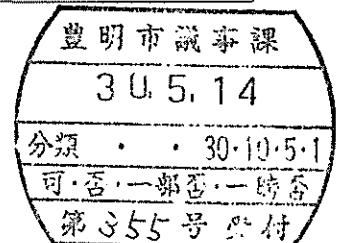 豊明市議事課
30.5.14
分類 ・ ・ 30・10・5・1
可・否・一部否・一時否
第355号 受付